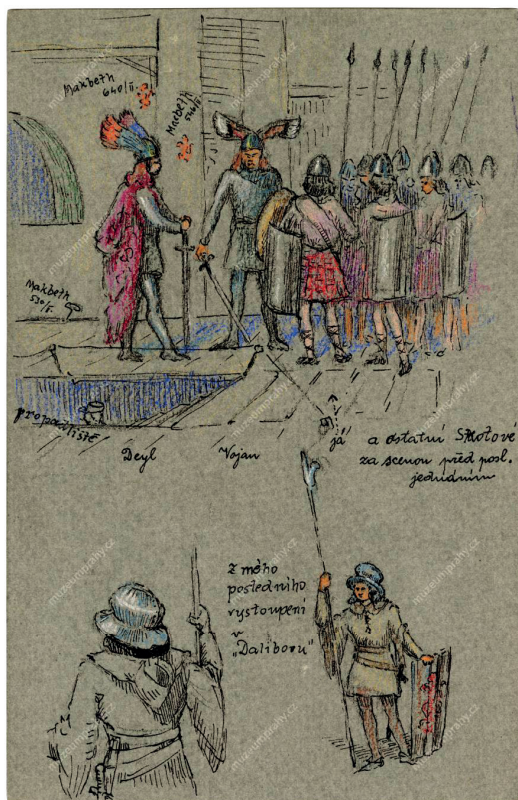 Makbeth
640/II.
Makbeth
546/II
Makbeth
530/I.
propadliště
Deyl
Vojan
já
a ostatní Skotové
za scenou před posl.
jednáním
z mého
posledního
vystoupení
v
„Daliboru"
museumprahy.cz